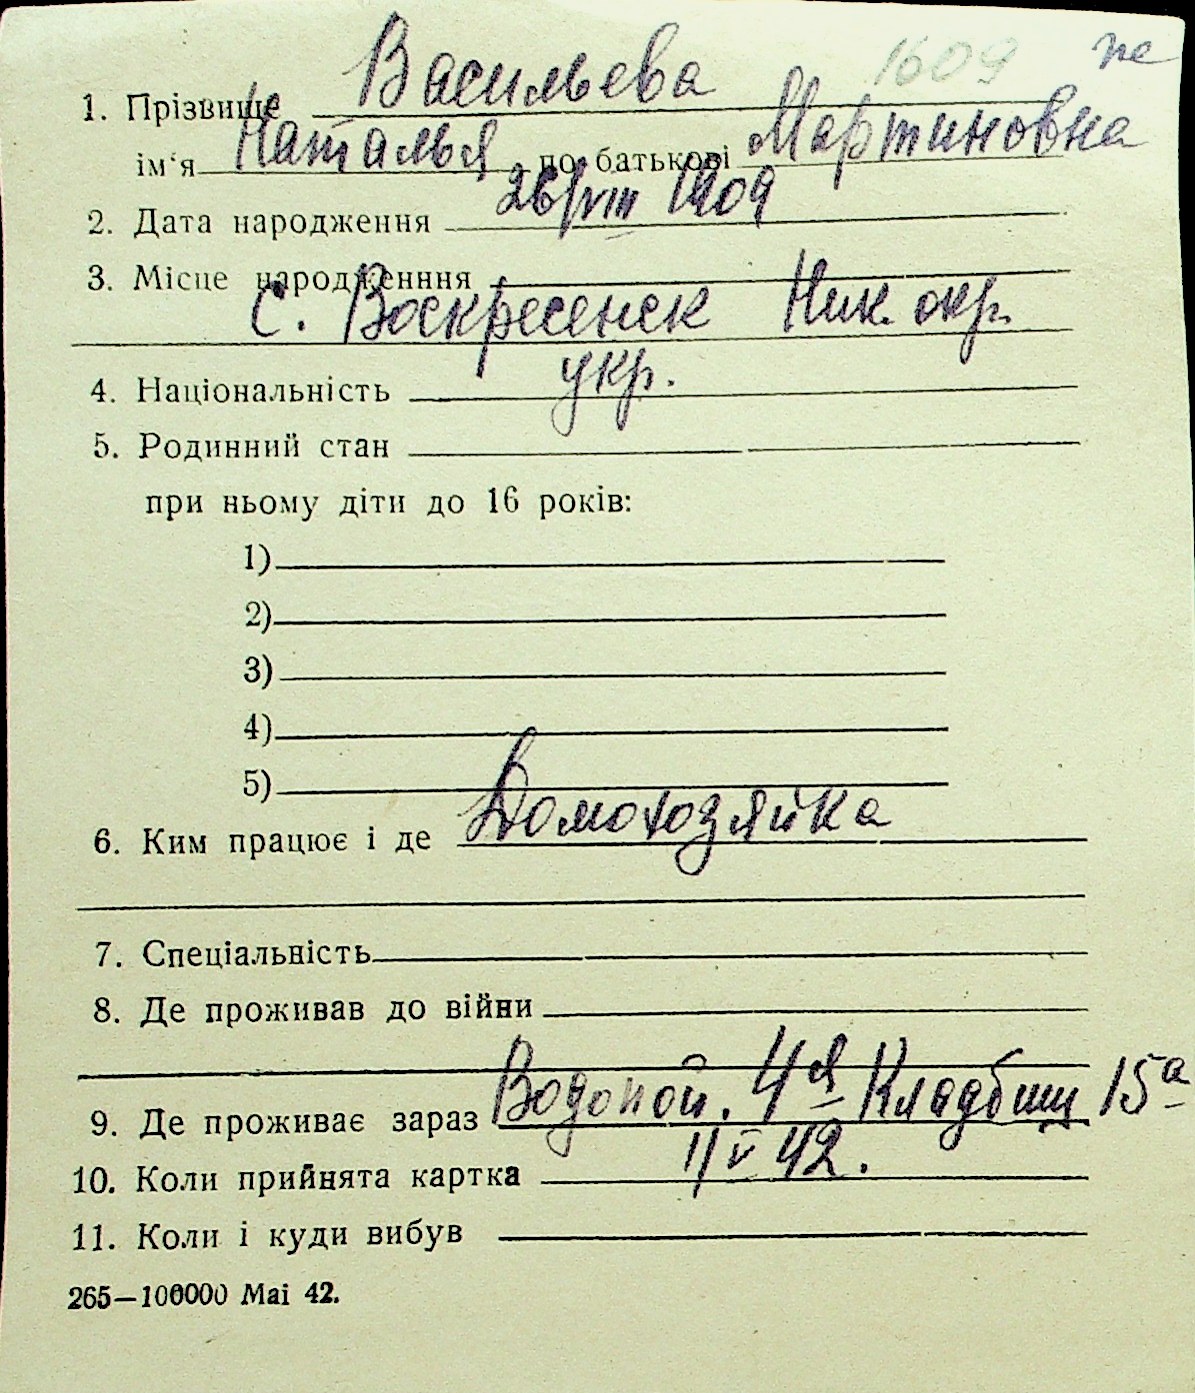 1609 не
1. Прізвище Васильева
ім‘я Наталья по батькові Мартиновна
2. Дата народження 26/VIII 1909
3. Місце народженння
с. Воскресенск Ник. окр.
4. Національність укр.
5. Родинний стан
при ньому діти до 16 років:
1)
2)
3)
4)
5)
6. Ким працює і де Домохозяйка
7. Спеціальність
8. Де проживав до війни
9. Де проживає зараз Водопой. 4я Кладбищ 15а
10. Коли прийнята картка 11/V 42.
11. Коли і куди вибув
265—100000 Маі 42.